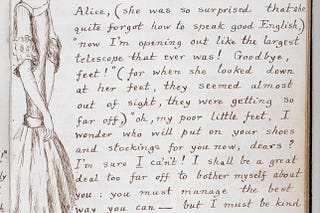 Alice, (she was so surprised that she
quite forgot how to speak good English,)
now I'm opening out like the largest
telescope that ever was! Goodbye,
feet!" (for when she looked down
at her feet, they seemed almost
out of sight, they were getting so
far off,) "oh, my poor little feet, I
wonder who will put on your shoes
and stockings for you now, dears?
I'm sure I can't! I shall be a great
deal too far off to bother myself about
you: you must manage the best
way you can — but I must be kind